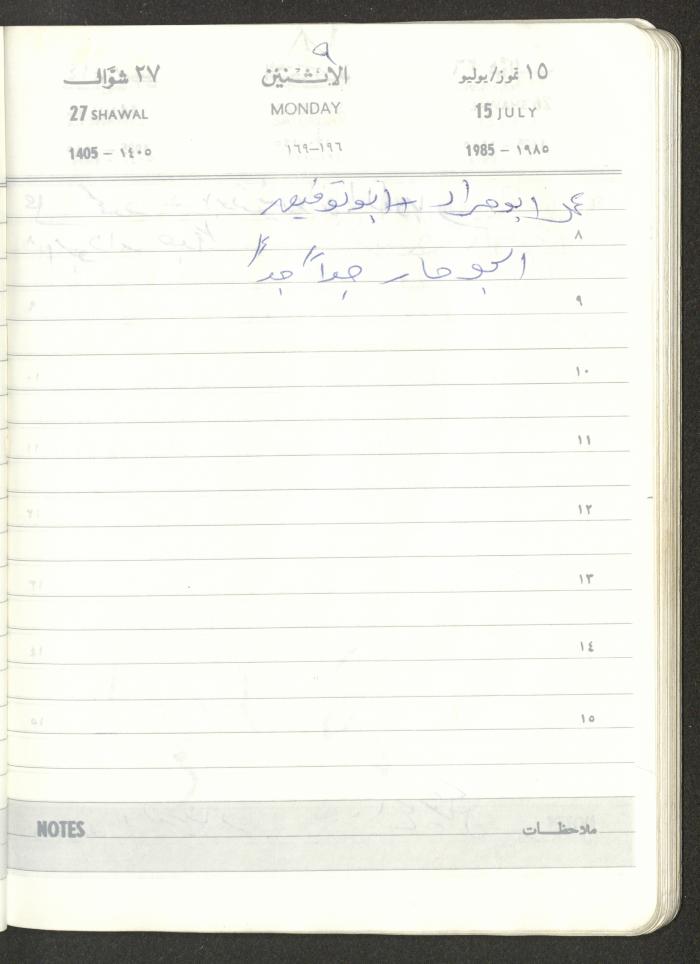 ٩
١٥ تموز/يوليو الاثنين ٢٧ شوَّال
15 JULY MONDAY 27 SHAWAL
1985 – ١٩٨٥ ١٩٦–١٦٩ 1405 – ١٤٠٥
ابو مراد + ابو توفيق
٨
الجو حار جداً جداً
٩
١٠
١١
١٢
١٣
١٤
١٥
ملاحظات NOTES